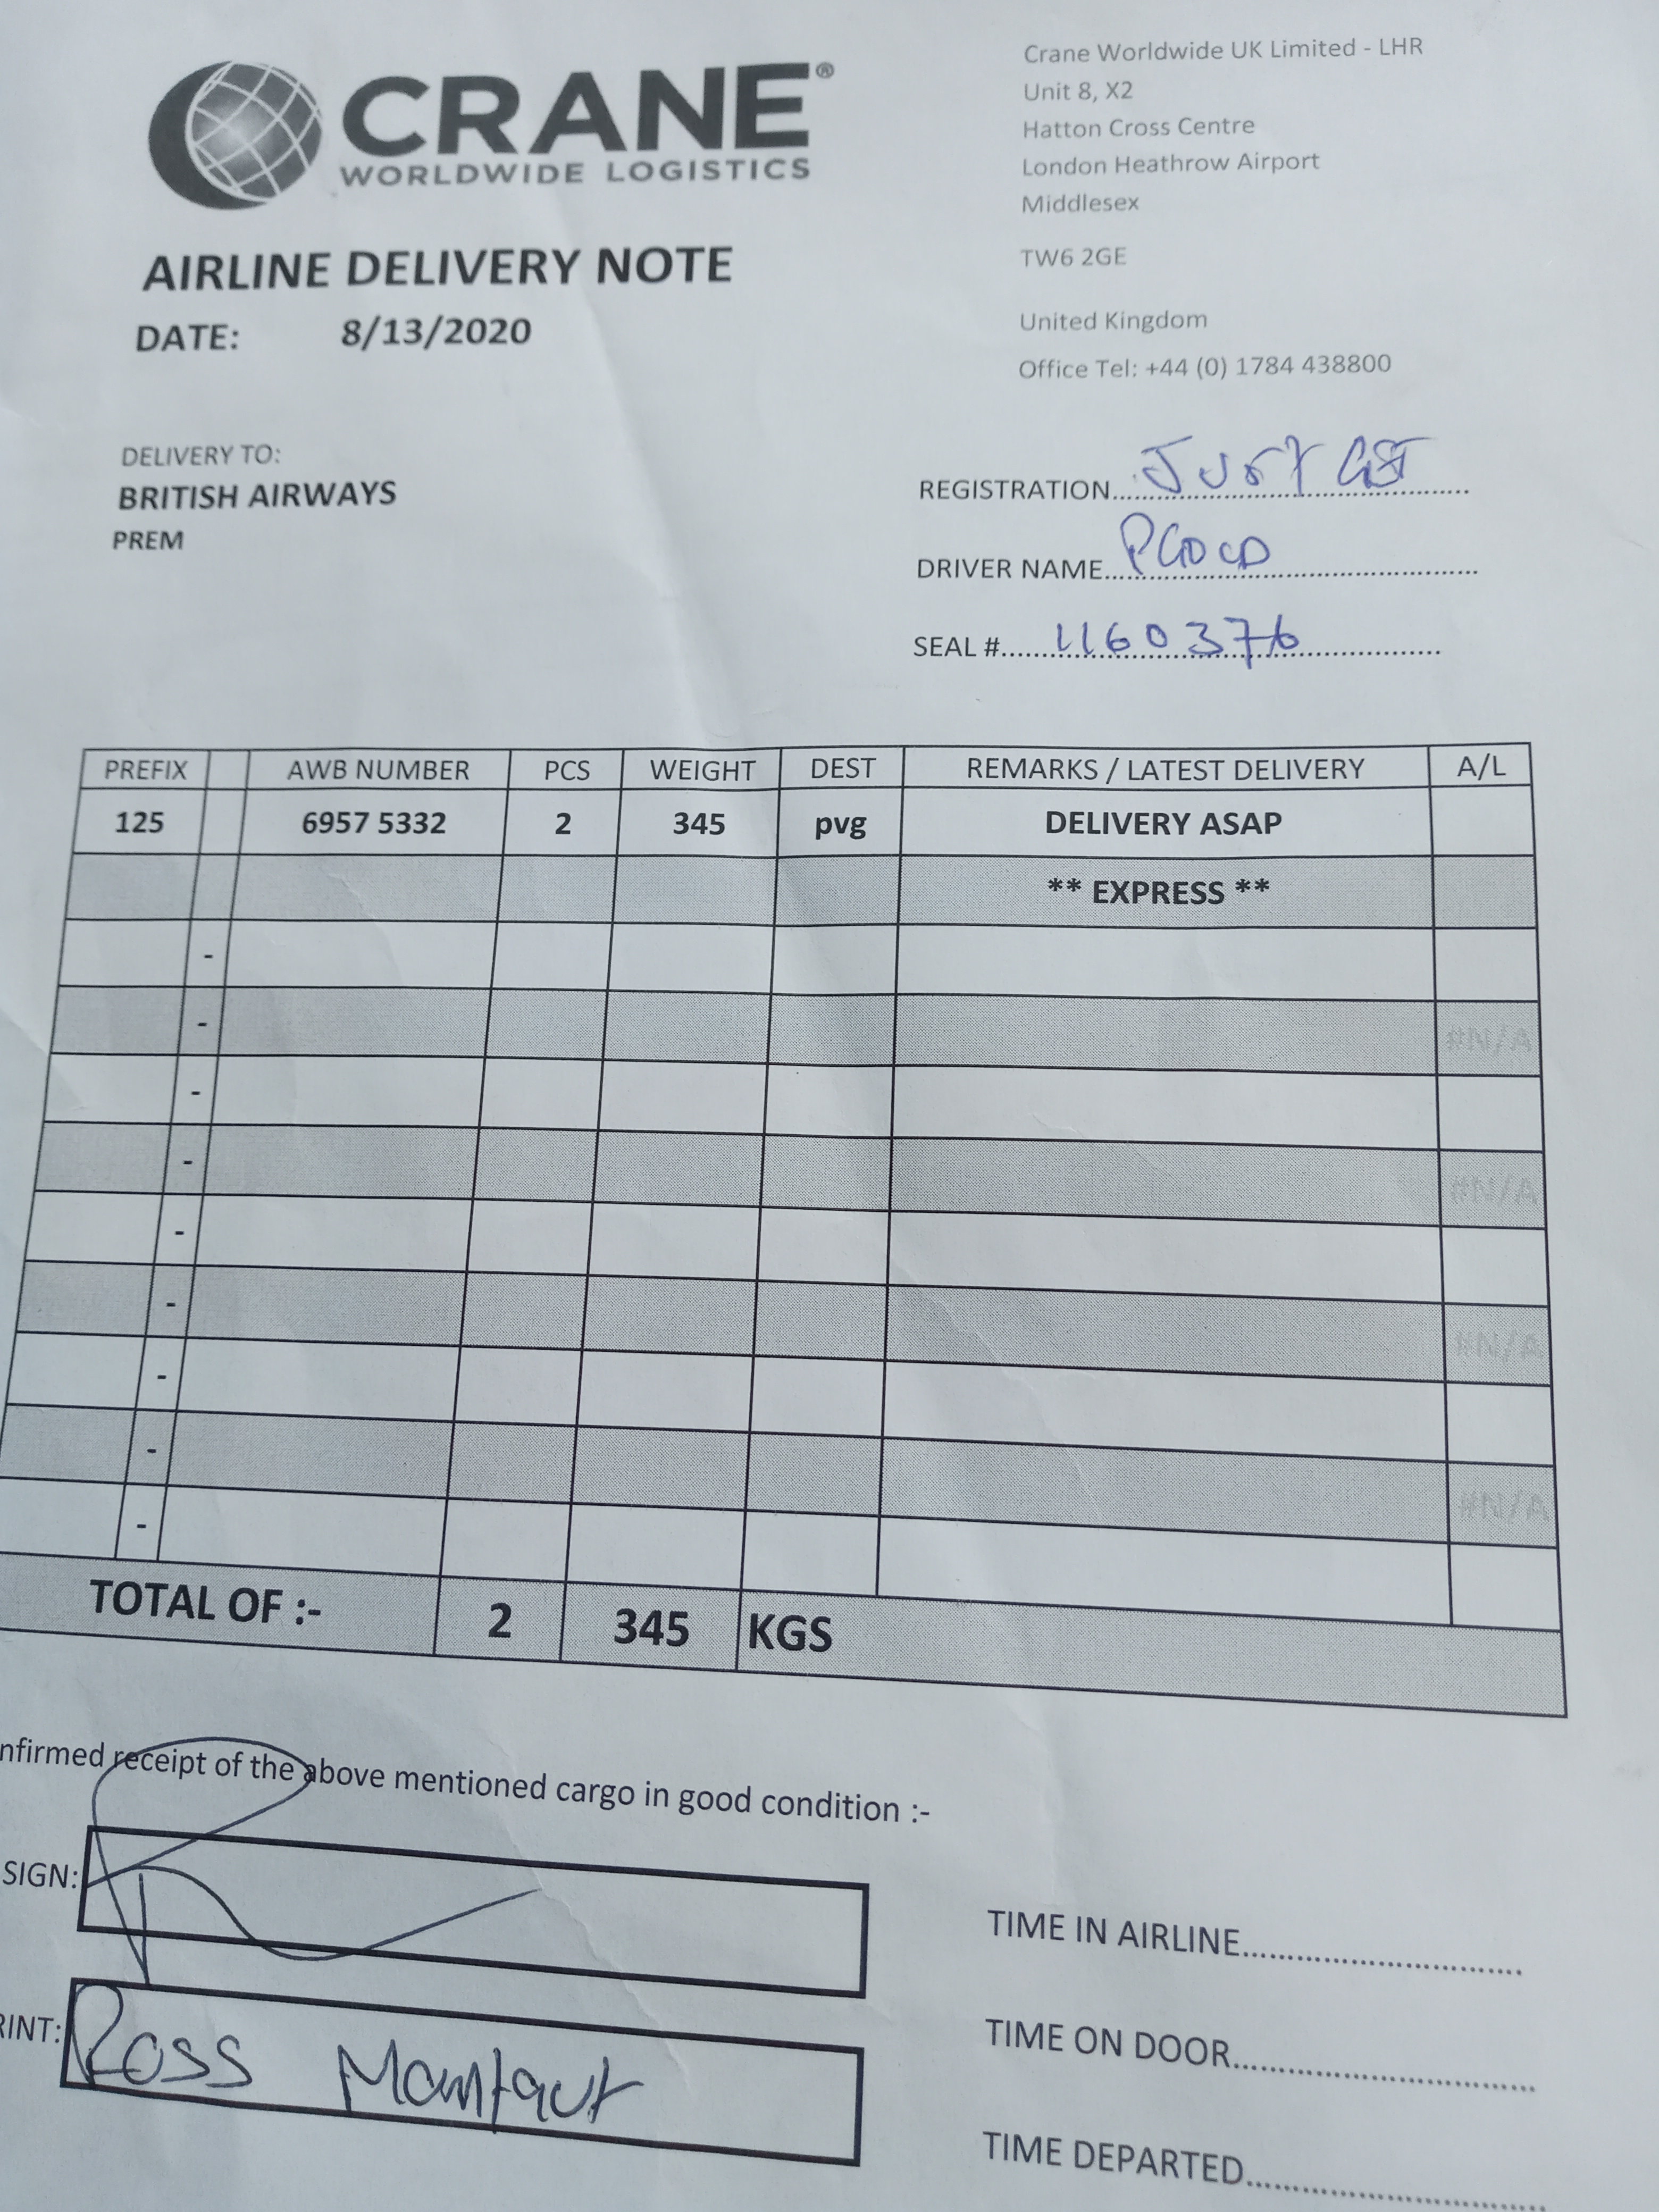 CRANE®
WORLDWIDE LOGISTICS
Crane Worldwide UK Limited - LHR
Unit 8, X2
Hatton Cross Centre
London Heathrow Airport
Middlesex
TW6 2GE
United Kingdom
Office Tel: +44 (0) 1784 438800
AIRLINE DELIVERY NOTE
DATE: 8/13/2020
DELIVERY TO:
BRITISH AIRWAYS
PREM
REGISTRATION
DRIVER NAME
SEAL # 1160376
PREFIX AWB NUMBER PCS WEIGHT DEST REMARKS / LATEST DELIVERY A/L
125 6957 5332 2 345 pvg DELIVERY ASAP
** EXPRESS **
-
- #N/A
-
- #N/A
-
- #N/A
-
- #N/A
-
TOTAL OF :- 2 345 KGS
nfirmed receipt of the above mentioned cargo in good condition :-
SIGN:
RINT: Ross
TIME IN AIRLINE
TIME ON DOOR
TIME DEPARTED